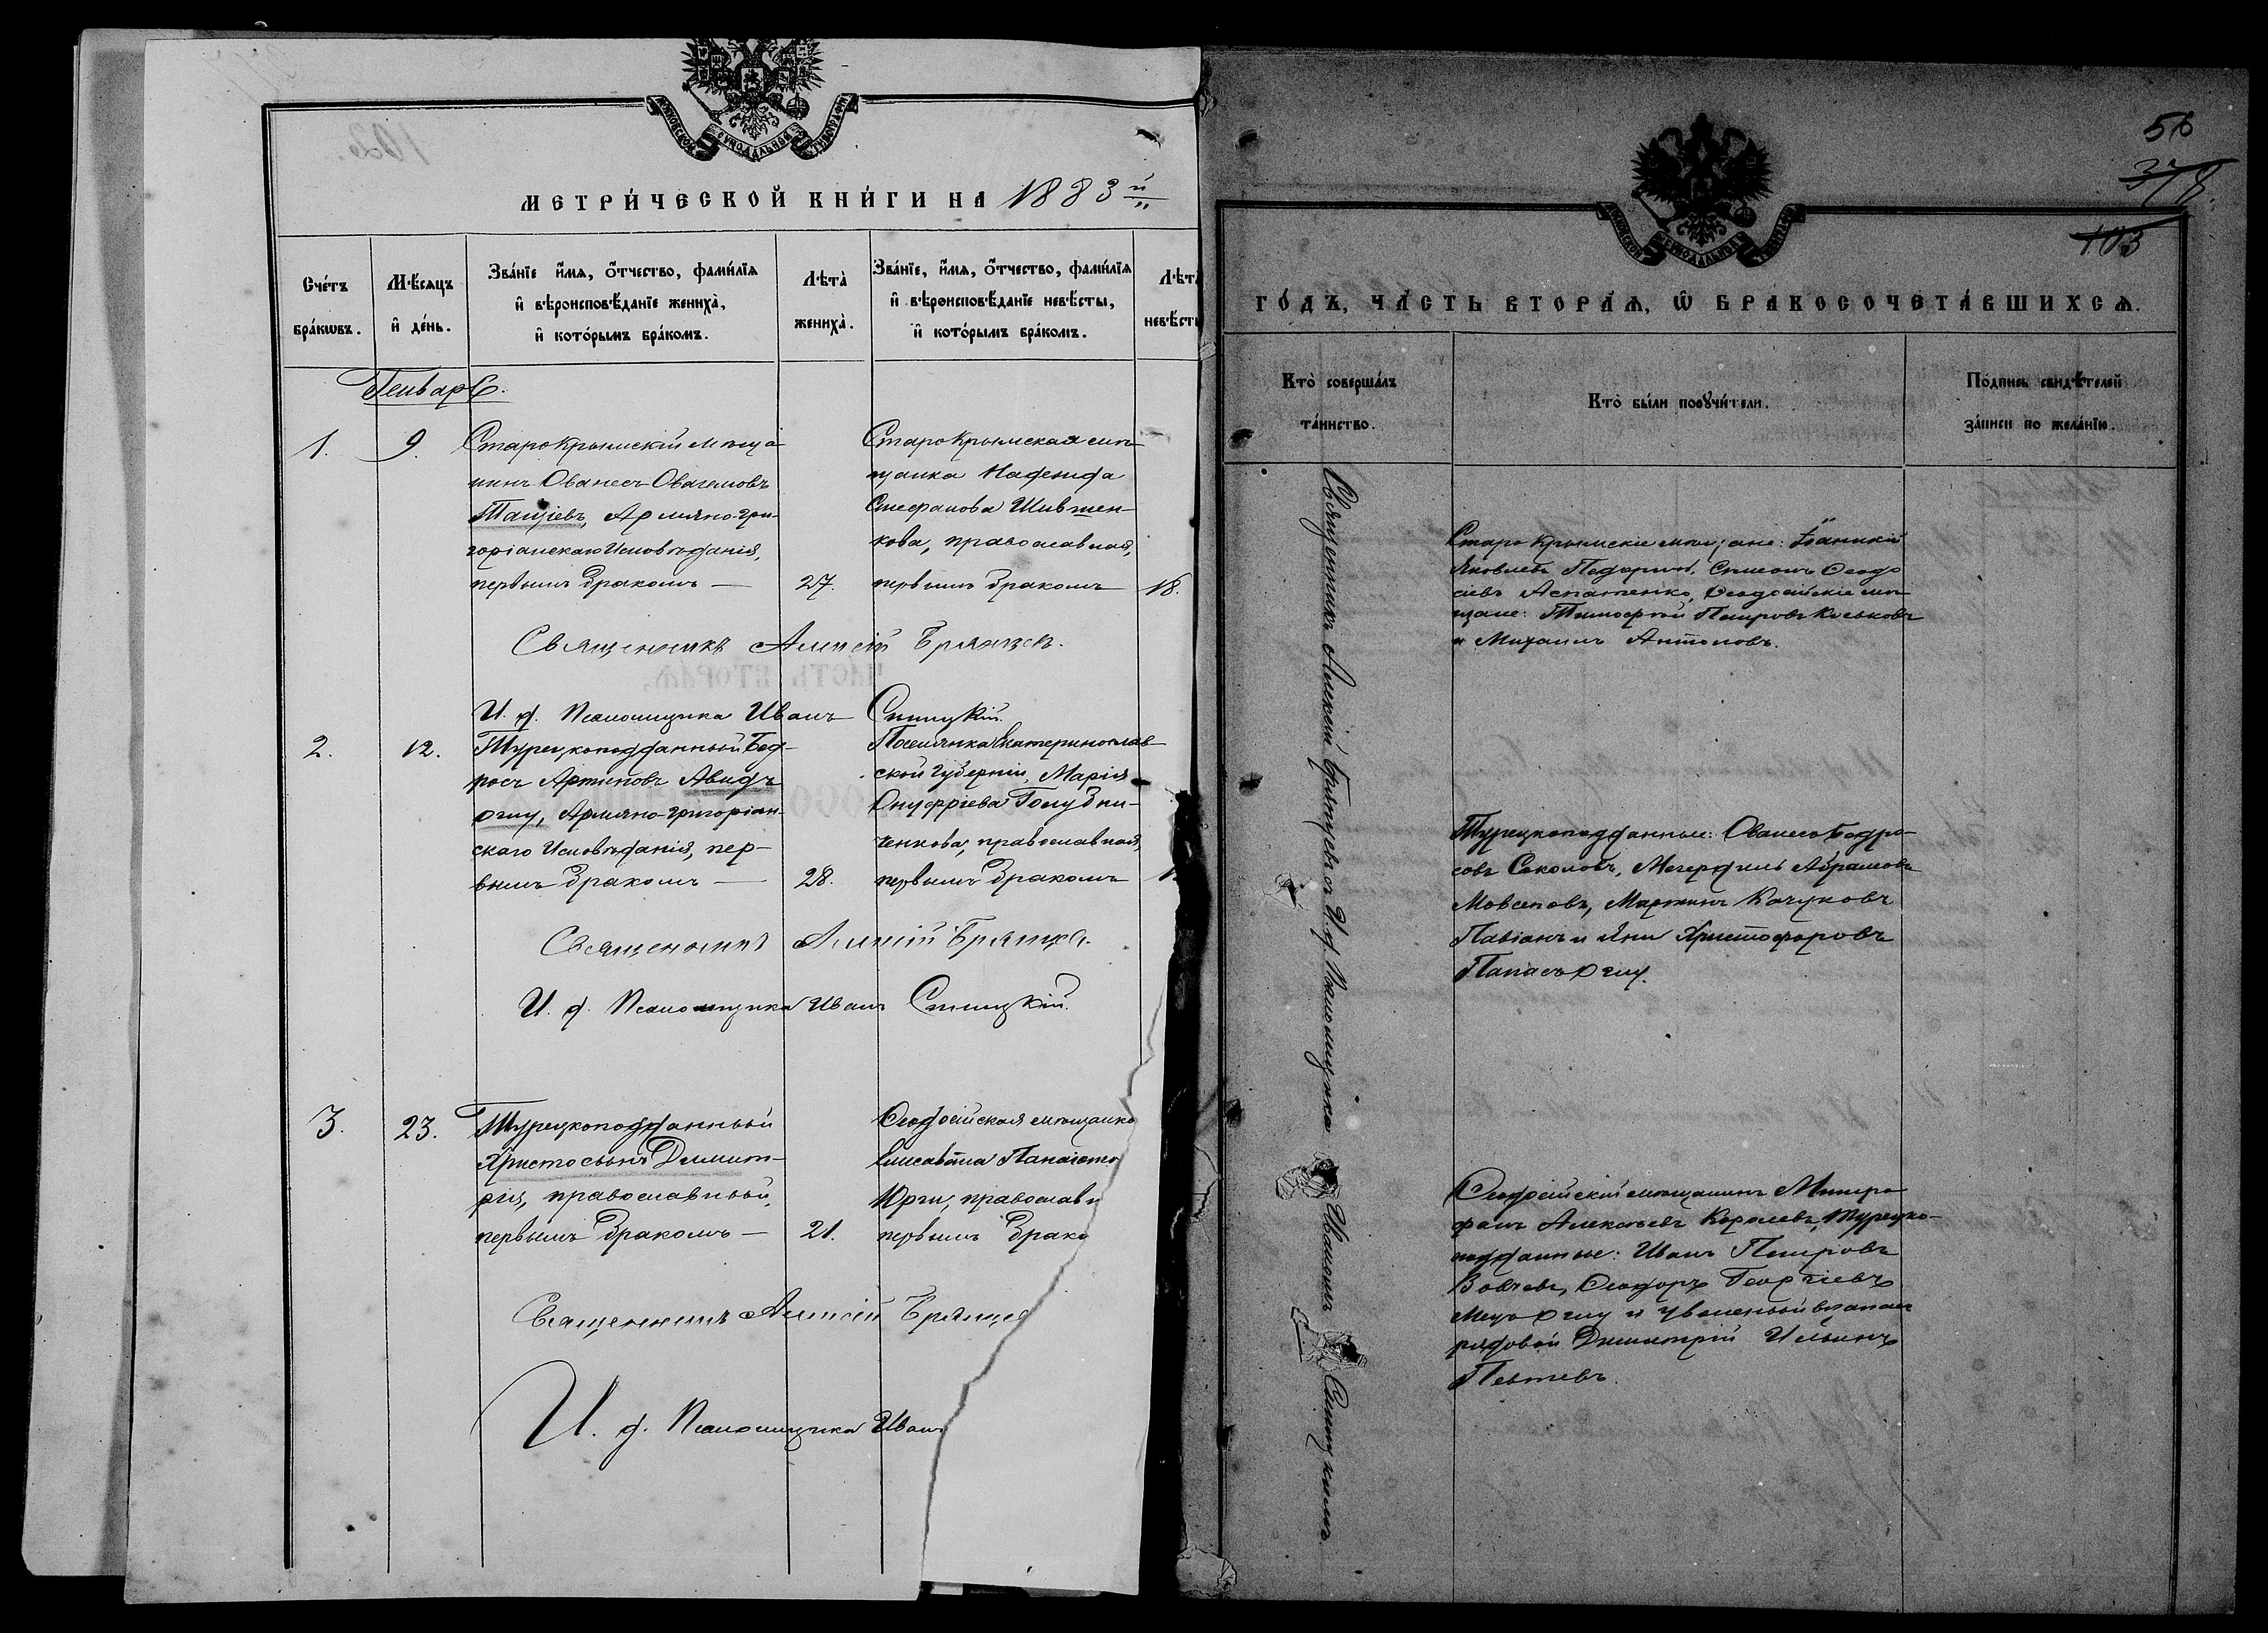 МЕТРИ́ЧЕСКОЙ КНИ́ГИ НА 1883 й
Сче́тъ бра́кωвъ.
Мѣ́сяцъ и҆ де́нь.
Зва́нїе и҆́мя, ѻ҆́тчество, фами́лїя и҆ вѣроисповѣ́данїе жениха̀, и҆ кото́рымъ бра́комъ.
Лѣта̀ жениха̀.
Зва́нїе, и҆́мя, ѻ҆́тчество, фами́лїя и҆ вѣроисповѣ́данїе невѣ́сты, и҆ кото́рымъ бра́комъ.
Лѣта невѣ́сты
Генварь.
1.
9.
Старокрымскій мѣща-
нинъ Ованесъ Овагемовъ
Армяно-гри-
горіанскаго Исповѣданія,
первымъ бракомъ —
27.
Старокрымская мѣ-
щанка
Стефанова Шевчен-
кова, православная,
первымъ бракомъ
18.
Священникъ Алексій Брянцевъ.
И. д. Псаломщика Иванъ Спицкій.
2.
12.
Турецкоподданный Бед-
росъ Артиновъ Авидъ
оглу, Армяно-григоріан-
скаго Исповѣданія, пер-
вымъ бракомъ —
28.
Поселянка Екатеринослав-
ской губерніи, Марія
Онуфріева Голубни-
ченкова, православная,
первымъ бракомъ
Священникъ Алексій Брянцевъ.
И. д. Псаломщика Иванъ Спицкій.
3.
23.
Турецкоподданный
Христо сынъ Димит-
рія, православный,
первымъ бракомъ —
21.
Ѳеодосійская мѣщанка
Елисавета Панаіото
Юрги, православн
первымъ брако
Священникъ Алексій Брянце
И. д. Псаломщика Иванъ
56
378.
103
ГО́ДЪ, ЧА́СТЬ ВТОРА́Я, Ѡ БРАКОСОЧЕТА́ВШИХСЯ.
Кто̀ соверша́лъ та́инство.
Кто̀ бы́ли поꙋчи́тели.
По́дпись свидѣ́телей за́писи по жела́нїю.
Священникъ Алексій Брянцевъ съ И. д. Псаломщика Иваномъ Спицкимъ.
Старокрымскіе мѣщане: Іоанникій
Яковлевъ Симеонъ Ѳеодо-
сіевъ Ѳеодосійскіе мѣ-
щане: Тимофей Петровъ Коськовъ
и Михаилъ Антоновъ.
Турецкоподданные: Ованесъ Бедро-
совъ Соколовъ, Абрамовъ
Мовсесовъ, Мартинъ
и Яни Христофоровъ
Папасъ оглу.
Ѳеодосійскій мѣщанинъ Митро-
фанъ Алексѣевъ Королевъ, Турецко-
подданные: Иванъ Петровъ
Ѳеодоръ Георгіевъ
оглу и уволенный въ запасъ
рядовой Димитрій Ильинъ